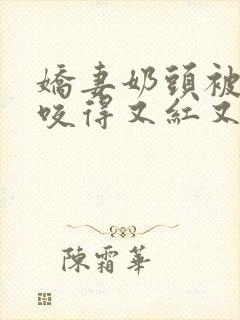 嬌妻奶頭被
咬得又紅又
陳霜華